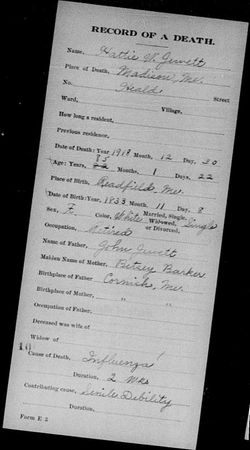 RECORD OF A DEATH.
Name, Hattie W. Jewett
Place of Death, Madison, Me.
No. Heald Street
Ward, Village,
How long a resident,
Previous residence,
Date of Death: Year 1918 Month, 12 Day, 30
85
Age: Years, Months, 1 Days, 22
Place of Birth, Readfield, Me.
Date of Birth: Year 1833 Month, 11 Day, 8
Sex, F. Color, White Married, Single, Single
Occupation, Retired Widowed or Divorced,
Name of Father, John Jewett
Maiden Name of Mother, Betsey Barker
Birthplace of Father, Cornish, Me.
Birthplace of Mother, " "
Occupation of Father,
Deceased was wife of
Widow of
10
Cause of Death, Influenza
Duration, 2 wks
Contributing cause, Senile Debility
Duration,
Form E 2